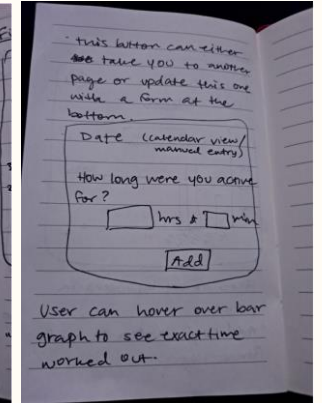 · this button can either
take you to another
page or update this one
with a form at the
bottom.
Date (calendar view/
manual entry)
How long were you active
for?
hrs & min
Add
User can hover over bar
graph to see exact time
worked out.